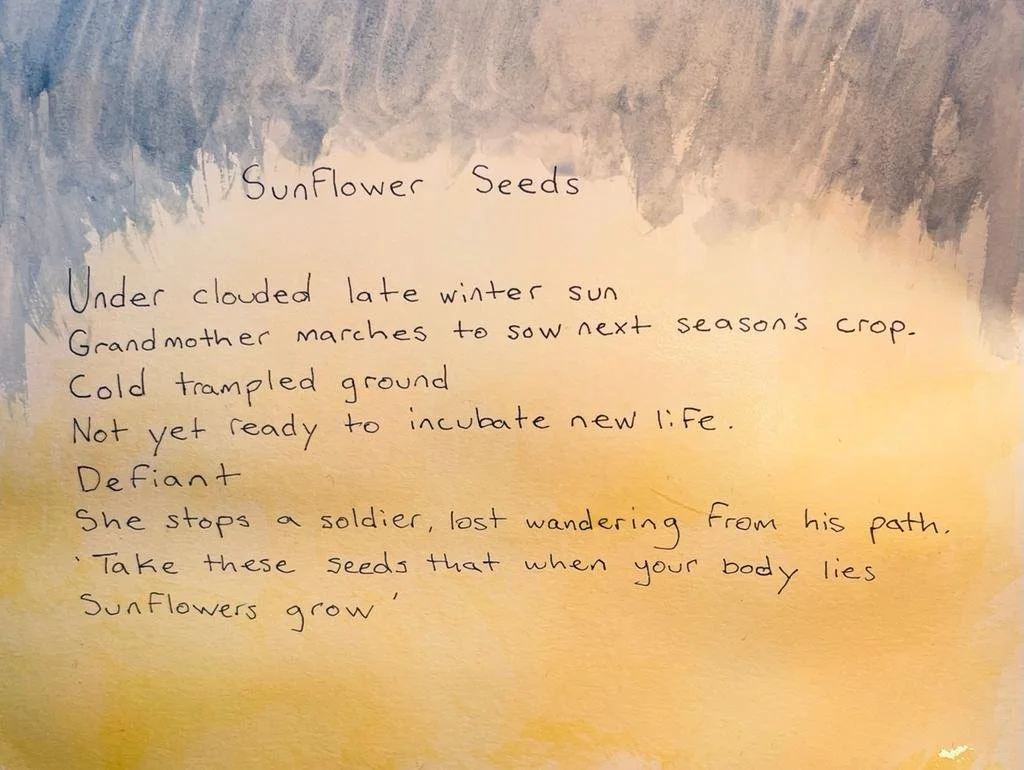 Sunflower Seeds
Under clouded late winter sun
Grandmother marches to sow next season's crop.
Cold trampled ground
Not yet ready to incubate new life.
Defiant
She stops a soldier, lost wandering from his path.
'Take these seeds that when your body lies
Sunflowers grow'